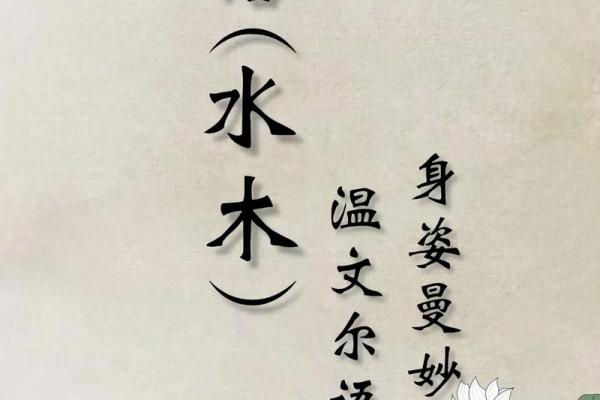 身姿曼妙
温文尔
（水木）